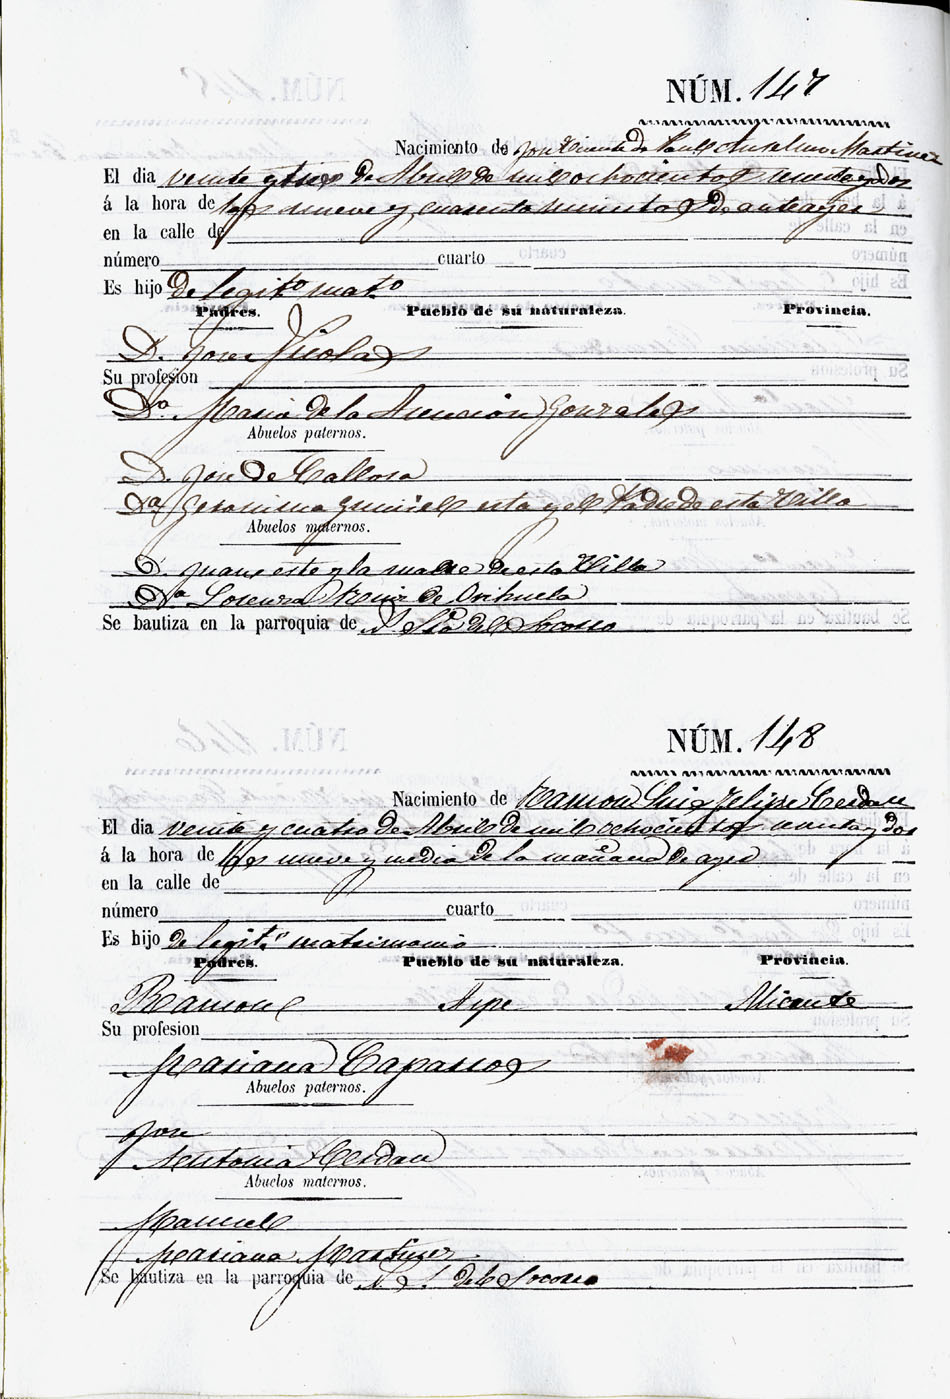 NÚM. 147
Nacimiento de José Vicente de Paul Anselmo Martinez
El dia veinte y tres de Abril de mil ochocientos y dos
á la hora de las nueve y cuarenta minutos de anteayer
en la calle de
número cuarto
Es hijo de legitº matº
Padres. Pueblo de su naturaleza. Provincia.
D. José Nicolas
Su profesion
Dª Maria de la Asencion Gonzales
Abuelos paternos.
D. José de Callosa
Dª Geronima esta y el Padre de esta Villa
Abuelos maternos.
D. Juan este y la madre de esta Villa
Dª Lorenza Ruiz de Orihuela
Se bautiza en la parroquia de N. Sra. del Socorro
NÚM. 148
Nacimiento de Ramon Luis Felipe Cerdan
El dia veinte y cuatro de Abril de mil ochocientos y dos
á la hora de las nueve y media de la mañana de ayer
en la calle de
número cuarto
Es hijo de legitº matrimonio
Padres. Pueblo de su naturaleza. Provincia.
Ramon Aspe Alicante
Su profesion
Mariana Caparros
Abuelos paternos.
José
Antonia Cerdan
Abuelos maternos.
Manuel
Mariana Martinez
Se bautiza en la parroquia de N. S. del Socorro